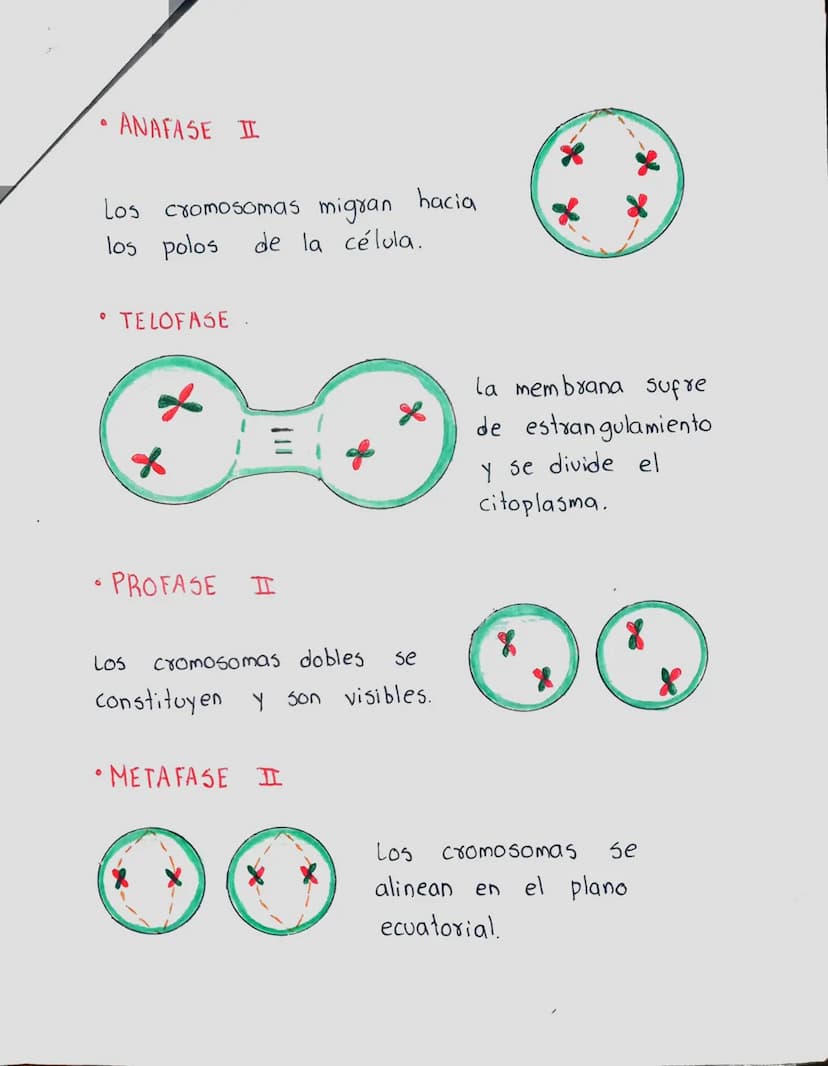 • ANAFASE II
Los cromosomas migran hacia
los polos de la célula.
• TELOFASE
La membrana sufre
de estrangulamiento
y se divide el
citoplasma.
• PROFASE II
Los cromosomas dobles se
constituyen y son visibles.
• METAFASE II
Los cromosomas se
alinean en el plano
ecuatorial.